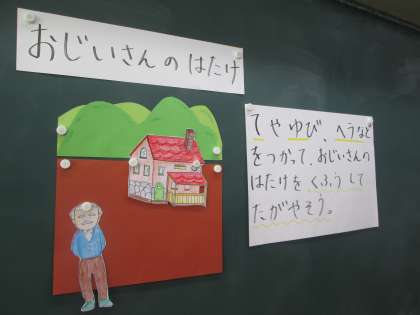 おじいさんのはたけ
てやゆび、ヘラなど
をつかって、おじいさんの
はたけをくふうして
たがやそう。